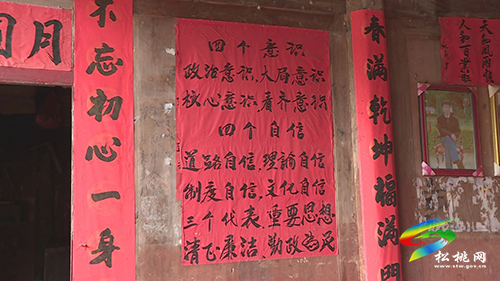 同月
不忘初心一身
四个意识
政治意识，大局意识
核心意识，看齐意识
四个自信
道路自信，理論自信
制度自信，文化自信
三个代表，重要思想
清正廉洁，勤政为民
春满乾坤福满門
人和百業
松桃网
www.stw.gov.cn